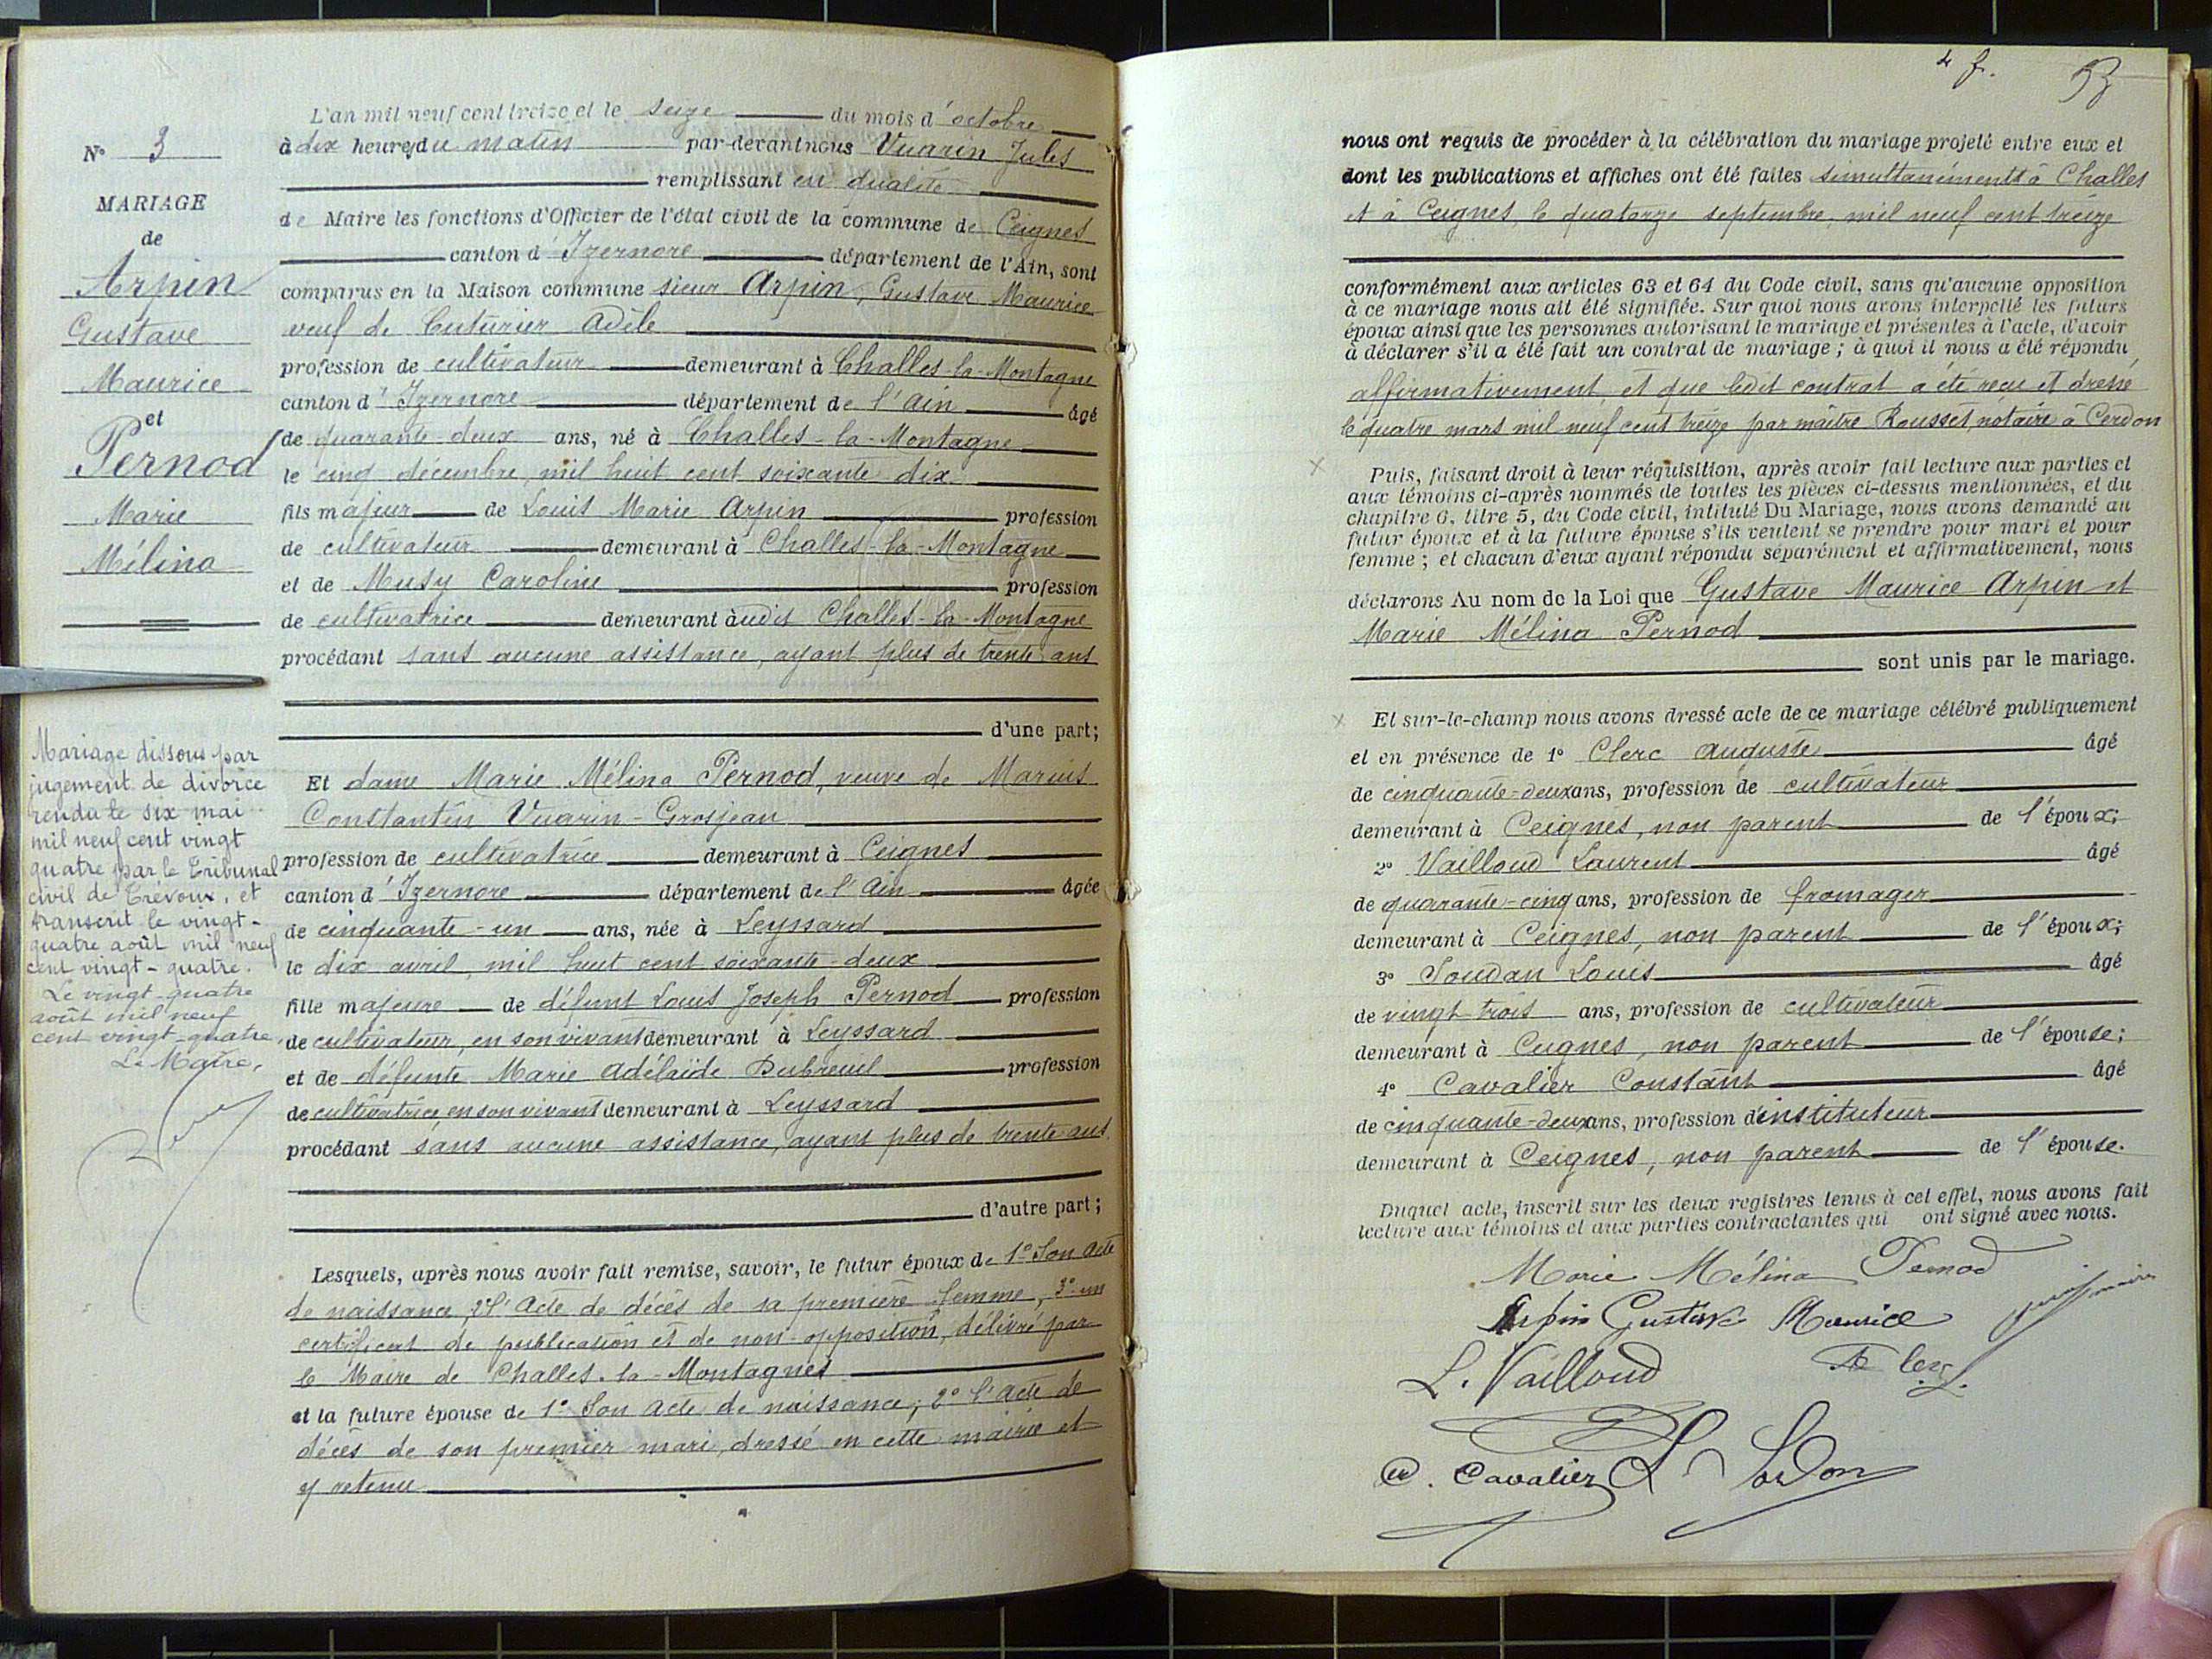 N° 3
MARIAGE
de
Arpin
Gustave
Maurice
et
Pernod
Marie
Mélina
Mariage dissous par
jugement de divorce
rendu le six mai
mil neuf cent vingt
quatre par le Tribunal
civil de Trévoux, et
transcrit le vingt-
quatre août mil neuf
cent vingt-quatre.
Le vingt-quatre
août mil neuf
cent vingt-quatre,
Le Maire,
L'an mil neuf cent treize et le seize du mois d'octobre
à dix heures du matin par-devant nous Vuarin Jules
remplissant en qualité
de Maire les fonctions d'Officier de l'état civil de la commune de Ceignes
canton d'Izernore département de l'Ain, sont
comparus en la Maison commune sieur Arpin, Gustave Maurice
veuf de Cuturier Adèle
profession de cultivateur demeurant à Challes-la-Montagne
canton d'Izernore département de l'Ain âgé
de quarante-deux ans, né à Challes-la-Montagne
le cinq décembre, mil huit cent soixante dix
fils majeur de Louis Marie Arpin profession
de cultivateur demeurant à Challes-la-Montagne
et de Musy Caroline profession
de cultivatrice demeurant àudit Challes-la-Montagne
procédant sans aucune assistance, ayant plus de trente ans
d'une part;
Et dame Marie Mélina Pernod, veuve de Marius
Constantin Vuarin-Grosjean
profession de cultivatrice demeurant à Ceignes
canton d'Izernore département de l'Ain âgée
de cinquante-un ans, née à Leyssard
le dix avril, mil huit cent soixante-deux
fille majeure de défunt Louis Joseph Pernod profession
de cultivateur, en son vivant demeurant à Leyssard
et de défunte Marie Adélaïde Dubreuil profession
de cultivatrice en son vivant demeurant à Leyssard
procédant sans aucune assistance, ayant plus de trente ans
d'autre part;
Lesquels, après nous avoir fait remise, savoir, le futur époux de 1° Son acte
de naissance, 2° l'Acte de décès de sa première femme, 3° un
certificat de publication et de non-opposition, délivré par
le Maire de Challes-la-Montagnes
et la future épouse de 1° Son acte de naissance; 2° l'acte de
décès de son premier mari, dressé en cette mairie et
y retenu
53
nous ont requis de procéder à la célébration du mariage projeté entre eux et
dont les publications et affiches ont été faites simultanéments à Challes
et à Ceignes, le quatorze septembre, mil neuf cent treize
conformément aux articles 63 et 64 du Code civil, sans qu'aucune opposition
à ce mariage nous ait été signifiée. Sur quoi nous avons interpellé les futurs
époux ainsi que les personnes autorisant le mariage et présentes à l'acte, d'avoir
à déclarer s'il a été fait un contrat de mariage; à quoi il nous a été répondu
affirmativement, et que ledit contrat a été reçu et dressé
le quatre mars mil neuf cent treize par maître Rousset, notaire à Cerdon
Puis, faisant droit à leur réquisition, après avoir fait lecture aux parties et
aux témoins ci-après nommés de toutes les pièces ci-dessus mentionnées, et du
chapitre 6, titre 5, du Code civil, intitulé Du Mariage, nous avons demandé au
futur époux et à la future épouse s'ils veulent se prendre pour mari et pour
femme; et chacun d'eux ayant répondu séparément et affirmativement, nous
déclarons Au nom de la Loi que Gustave Maurice Arpin et
Marie Mélina Pernod
sont unis par le mariage.
Et sur-le-champ nous avons dressé acte de ce mariage célébré publiquement
et en présence de 1° Clerc Auguste âgé
de cinquante-deux ans, profession de cultivateur
demeurant à Ceignes, non parent de l'époux;
2° Vailloud Laurent âgé
de quarante-cinq ans, profession de fromager
demeurant à Ceignes, non parent de l'époux;
3° Soudan Louis âgé
de vingt trois ans, profession de cultivateur
demeurant à Ceignes, non parent de l'épouse;
4° Cavalier Constant âgé
de cinquante-deux ans, profession d'instituteur
demeurant à Ceignes, non parent de l'épouse.
Duquel acte, inscrit sur les deux registres tenus à cet effet, nous avons fait
lecture aux témoins et aux parties contractantes qui ont signé avec nous.
Marie Mélina Pernod
Arpin Gustave Maurice
L. Vailloud
C. Cavalier